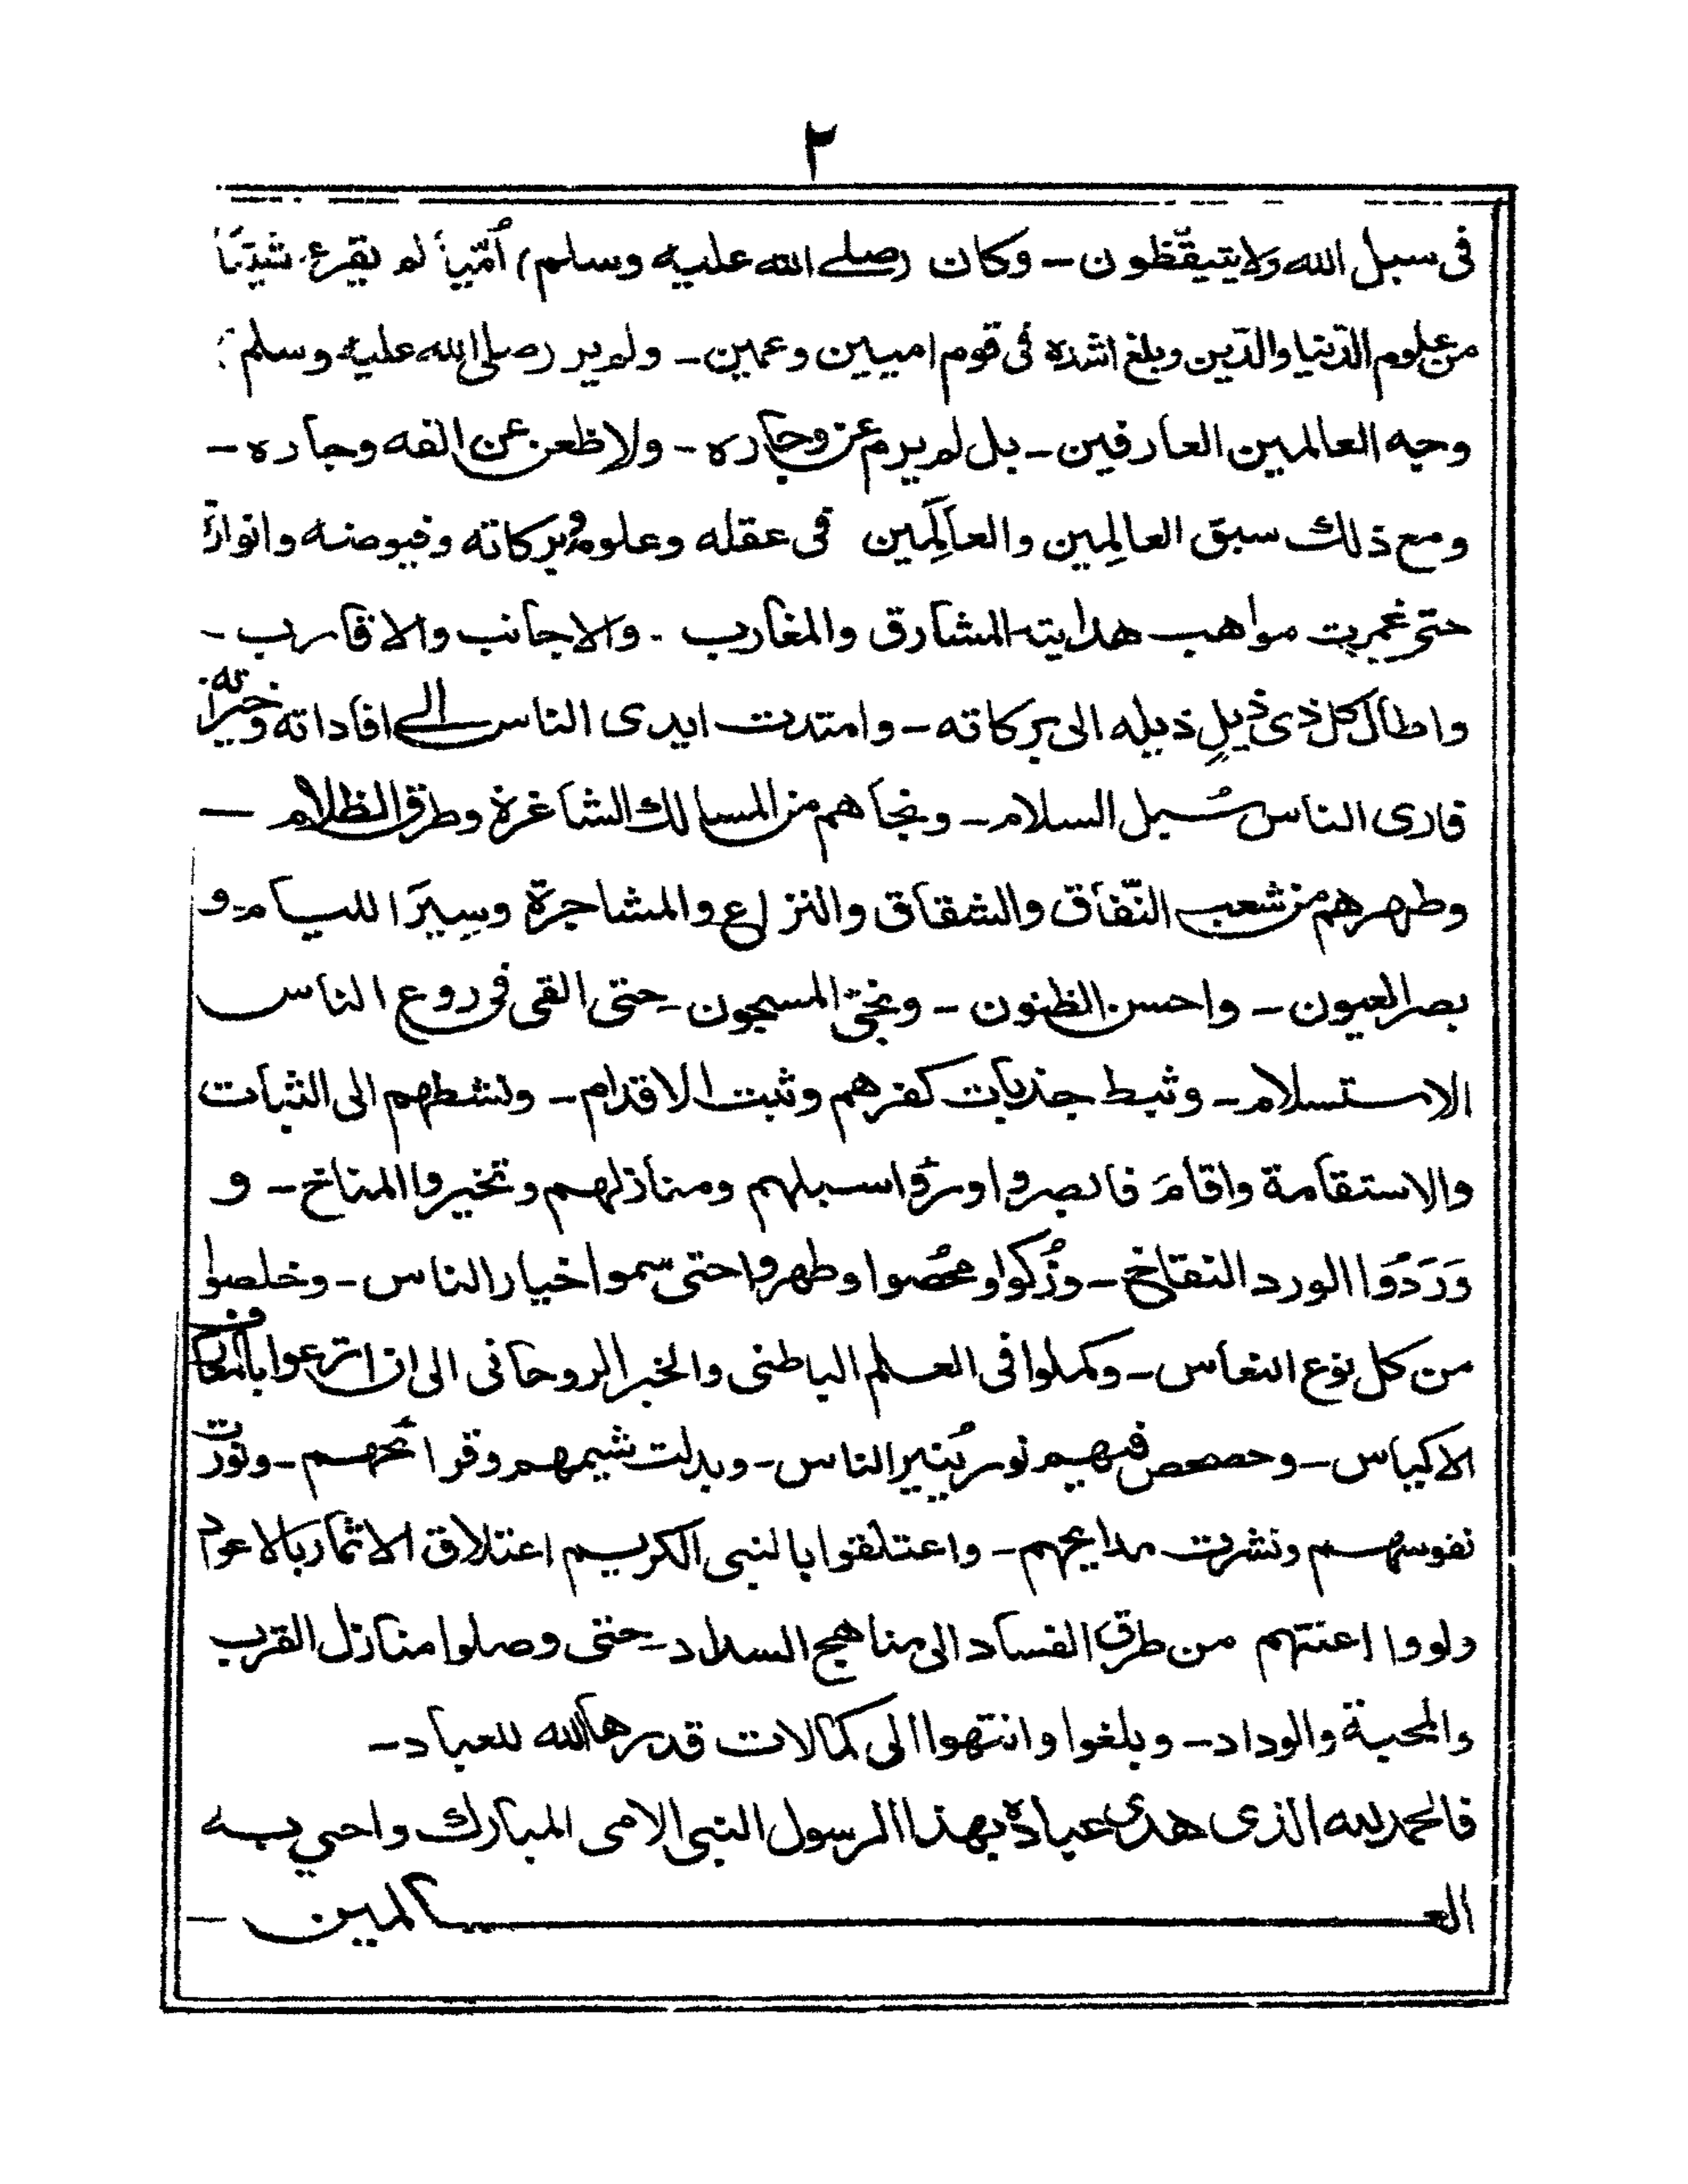 ٢
فى سبل الله ولا يتيقّظون ـ وكان (صلے الله عليه وسلم) اُمّيًا لم يقرء شيئًا
من علوم الدّنيا والدّين وبلغ اشده فى قوم اميين وعمين ـ ولم ير (صلى الله عليه وسلم)
وجه العالمين العارفين ـ بل لم يرم عن وجاره ـ ولا ظعن عن الفه وجاره ـ
ومع ذلك سبق العالمِين والعالَمين فى عقله وعلومه وبركاته وفيوضه وانواره
حتى غمرت مواهب هدايته المشارق والمغارب ـ والاجانب والاقارب ـ
واطال كل ذى ذيلٍ ذيله الى بركاته ـ وامتدت ايدى الناس الے افاداته وخيراته
فارى الناس سُبل السلام ـ ونجاهم من المسالك الشاغرة وطرق الظلام ـ
وطهرهم من شعب النّفاق والشقاق والنزاع والمشاجرة وسِيَر اللئام ـ و
بصر العيون ـ واحسن الظنون ـ ونجّى المسجون ـ حتى القى فى روع الناس
الاستسلام ـ وثبط جذبات كفرهم وثبت الاقدام ـ ونشطهم الى الثبات
والاستقامة واقامَ فابصروا ورؤا سبلهم ومنازلهم وتخيروا المناخ ـ و
وَرَدُوا الورد النقاخ ـ وزُكوا ومُحّصوا وطهروا حتى سموا خيار الناس ـ وخلصوا
من كل نوع النعاس ـ وكملوا فى العلم الباطنى والخبر الروحانى الى ان اترعوا بالمعارف
الاكياس ـ وحصحص فيهم نور يُنير الناس ـ وبدلت شيمهم وقرائحهم ـ ونورت
نفوسهم ونشرت مدايحهم ـ واعتلقوا بالنبى الكريم اعتلاق الاثمار بالاعواد
ولووا اعنتهم من طرق الفساد الى مناهج السداد ـ حتى وصلوا منازل القرب
والمحبة والوداد ـ وبلغوا وانتهوا الى كمالات قدرها الله للعباد ـ
فالحمد لله الذى هدى عباده بهذا الرسول النبى الامى المبارك واحى به
العـــالمين ـ